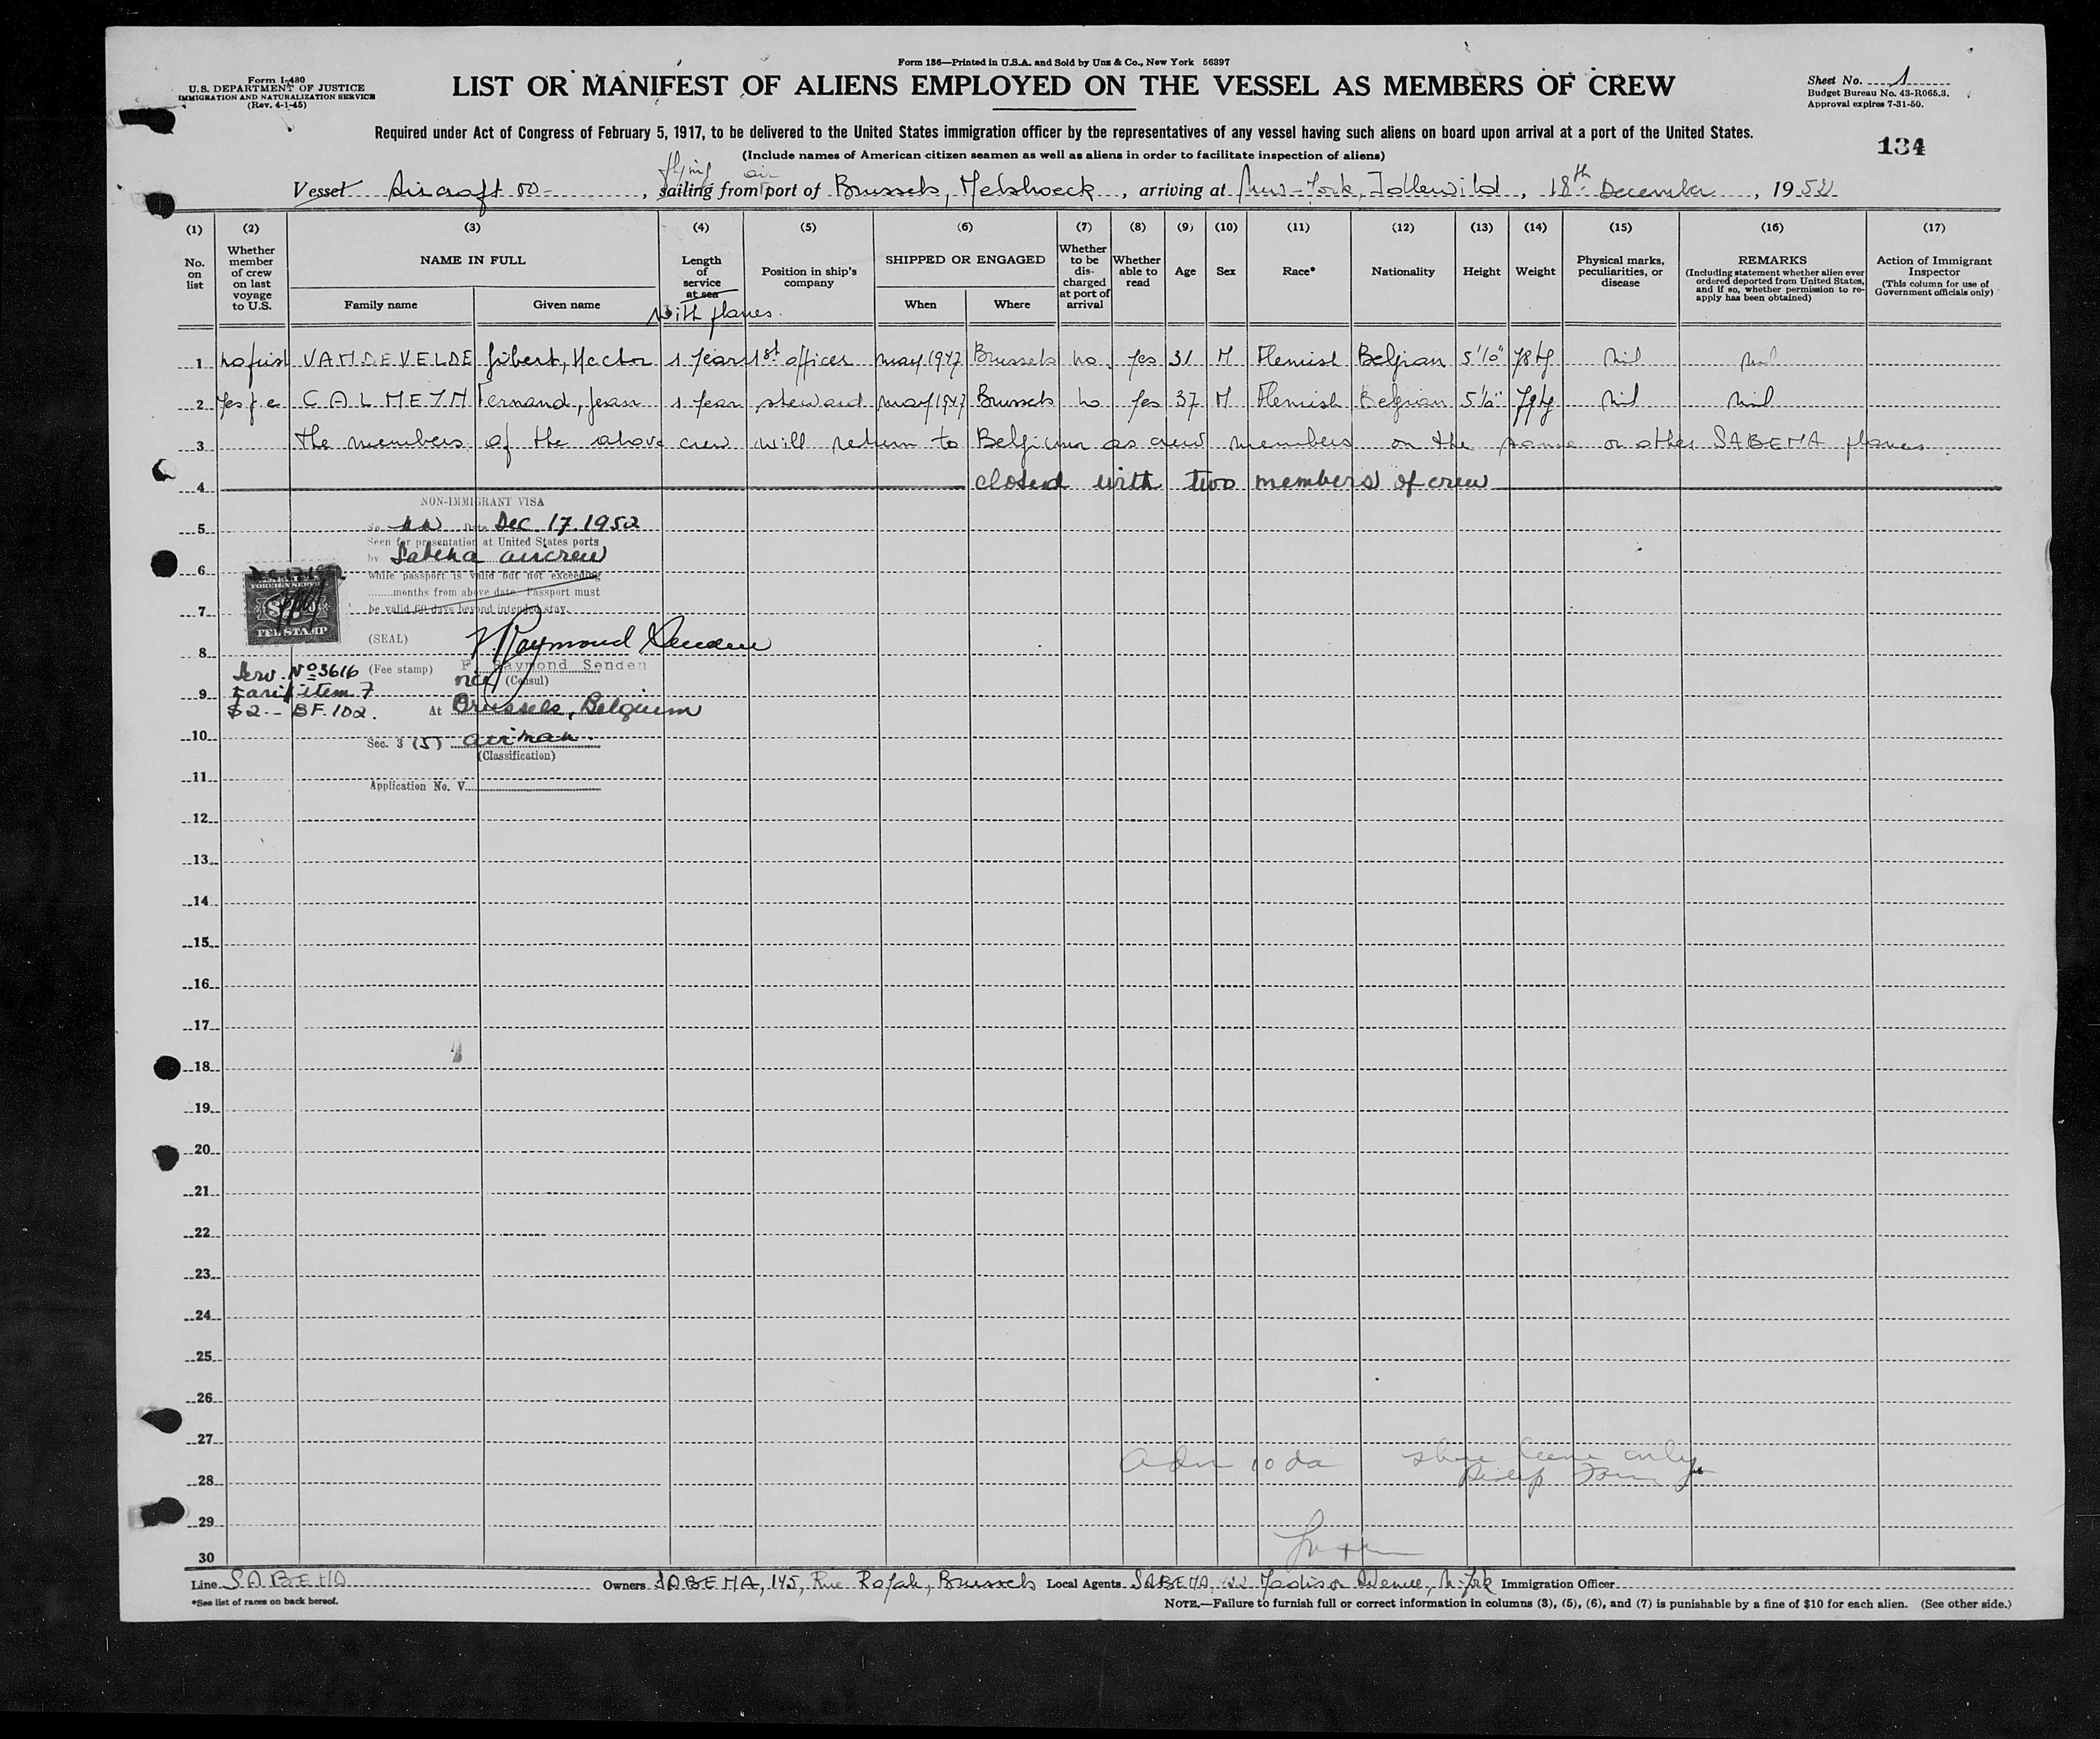 Form 136—Printed in U.S.A. and Sold by Unz & Co., New York 56397
Form I-480
U.S. DEPARTMENT OF JUSTICE
IMMIGRATION AND NATURALIZATION SERVICE
(Rev. 4-1-45)
LIST OR MANIFEST OF ALIENS EMPLOYED ON THE VESSEL AS MEMBERS OF CREW
Sheet No. 1
Budget Bureau No. 43-R065.3.
Approval expires 7-31-50.
Required under Act of Congress of February 5, 1917, to be delivered to the United States immigration officer by the representatives of any vessel having such aliens on board upon arrival at a port of the United States.
134
(Include names of American citizen seamen as well as aliens in order to facilitate inspection of aliens)
flying air
Vessel Aircraft OO- , sailing from port of Brussels, Melsbroeck , arriving at New-York, Idlewild , 18th December , 1952
(1) (2) (3) (4) (5) (6) (7) (8) (9) (10) (11) (12) (13) (14) (15) (16) (17)
No. on list
Whether member of crew on last voyage to U.S.
NAME IN FULL
Family name
Given name
Length of service at sea
with planes.
Position in ship's company
SHIPPED OR ENGAGED
When
Where
Whether to be discharged at port of arrival
Whether able to read
Age
Sex
Race*
Nationality
Height
Weight
Physical marks, peculiarities, or disease
REMARKS
(Including statement whether alien ever ordered deported from United States, and if so, whether permission to reapply has been obtained)
Action of Immigrant Inspector
(This column for use of Government officials only)
1 no first VANDEVELDE Gilbert, Hector 1 year 1st officer may 1947 Brussels no. yes 31 M Flemish Belgian 5'10" 78 kg nil nil
2 yes CALMEYN Fernand, Jean 1 year steward may 1947 Brussels no yes 37 M Flemish Belgian nil nil
3 the members of the above crew will return to Belgium as crew members on the same or other SABENA planes.
4 closed with two members of crew
NON-IMMIGRANT VISA
No. Date Dec. 17. 1952
5
Seen for presentation at United States ports
by Sabena aircrew
6
while passport is valid but not exceeding
........months from above date. Passport must
be valid 60 days beyond intended stay.
FOREIGN SERVICE
FEE STAMP
7
(SEAL) F. Raymond Senden
8
Serv. No 3616 (Fee stamp) F. Raymond Senden
vice (Consul)
Tariff item 7
9
$2.- BF. 102. At Brussels, Belgium
10
Sec. 3 (5) airman.
(Classification)
11
Application No. V
12
13
14
15
16
17
18
19
20
21
22
23
24
25
26
27
Adm 10 da shore leave only
28
29
30
Line SABENA Owners SABENA, 145, Rue Royale, Brussels Local Agents SABENA, 422 Madison Avenue, N-York Immigration Officer
*See list of races on back hereof.
NOTE.—Failure to furnish full or correct information in columns (3), (5), (6), and (7) is punishable by a fine of $10 for each alien. (See other side.)